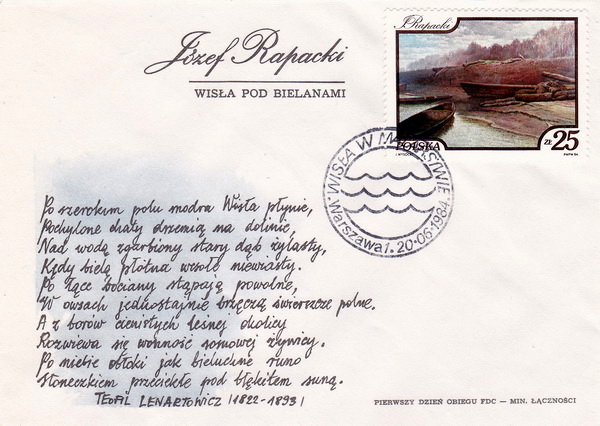 Józef Rapacki
WISŁA POD BIELANAMI
J. Rapacki
POLSKA
ZŁ 25
WISŁA W MALARSTWIE
Warszawa 1. 20-06-1984.
Po szerokim polu modra Wisła płynie,
Pochylone chaty drzemią na dolinie,
Nad wodą zgarbiony stary dąb żylasty,
Kędy bielą płótna wesołe niewiasty.
Po łące bociany stąpają powolne,
W owsach jednostajnie brzęczą świerszcze polne.
A z borów cienistych leśnej okolicy
Rozwiewa się wonność sosnowej żywicy.
Po niebie obłoki jak bieluchne runo
Słoneczkiem przeciekłe pod błękitem suną.
TEOFIL LENARTOWICZ (1822-1893)
PIERWSZY DZIEŃ OBIEGU FDC — MIN. ŁĄCZNOŚCI